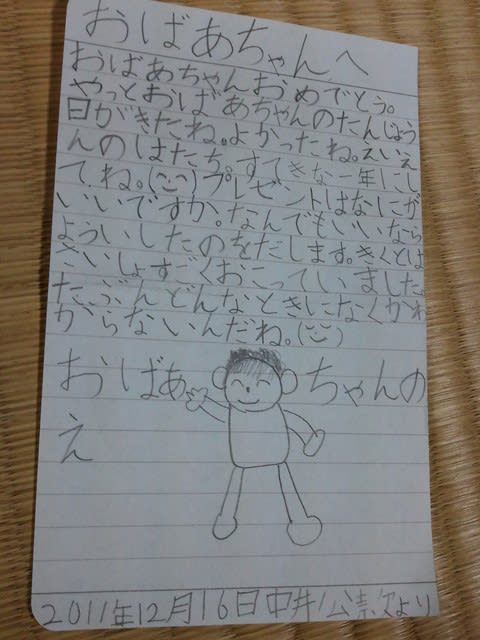 おばあちゃんへ
おばあちゃんおめでとう。
やっとおばあちゃんのたんじょう
日がきたね。よかったね。えいえ
んのはたち。すてきな一年にし
てね。(^^)プレゼントはなにが
いいですか。なんでもいいなら
よういしたのをだします。きくとは
さいしょすごくおこっていました。
たぶんどんなときになくかわ
からないんだね。(^^)
おばあちゃんの
え
2011年12月16日中井より